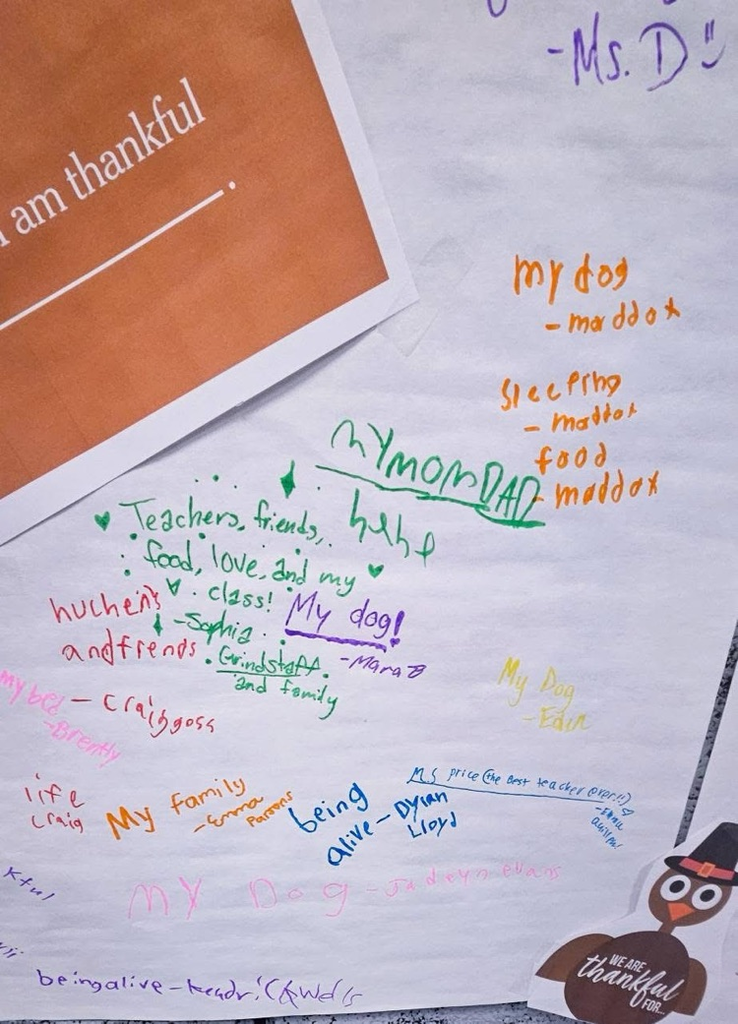 -Ms. D
am thankful
.
my dog
- maddox
sleeping
- maddox
food
- maddox
MY MOM DAD
Teachers, friends,
food, love, and my
class!
-Sophia
Grindstaff
and family
My dog!
-Mana B
and frends
- Craig goss
my bed
-Brently
My Dog
- Edin
life
Craig
My family
-Emma
Parsons
being
alive - Dylan
Lloyd
Ms price (the best teacher ever!!)
MY Dog - Jadeyn evans
kful
being alive -
WE ARE
thankful
FOR...